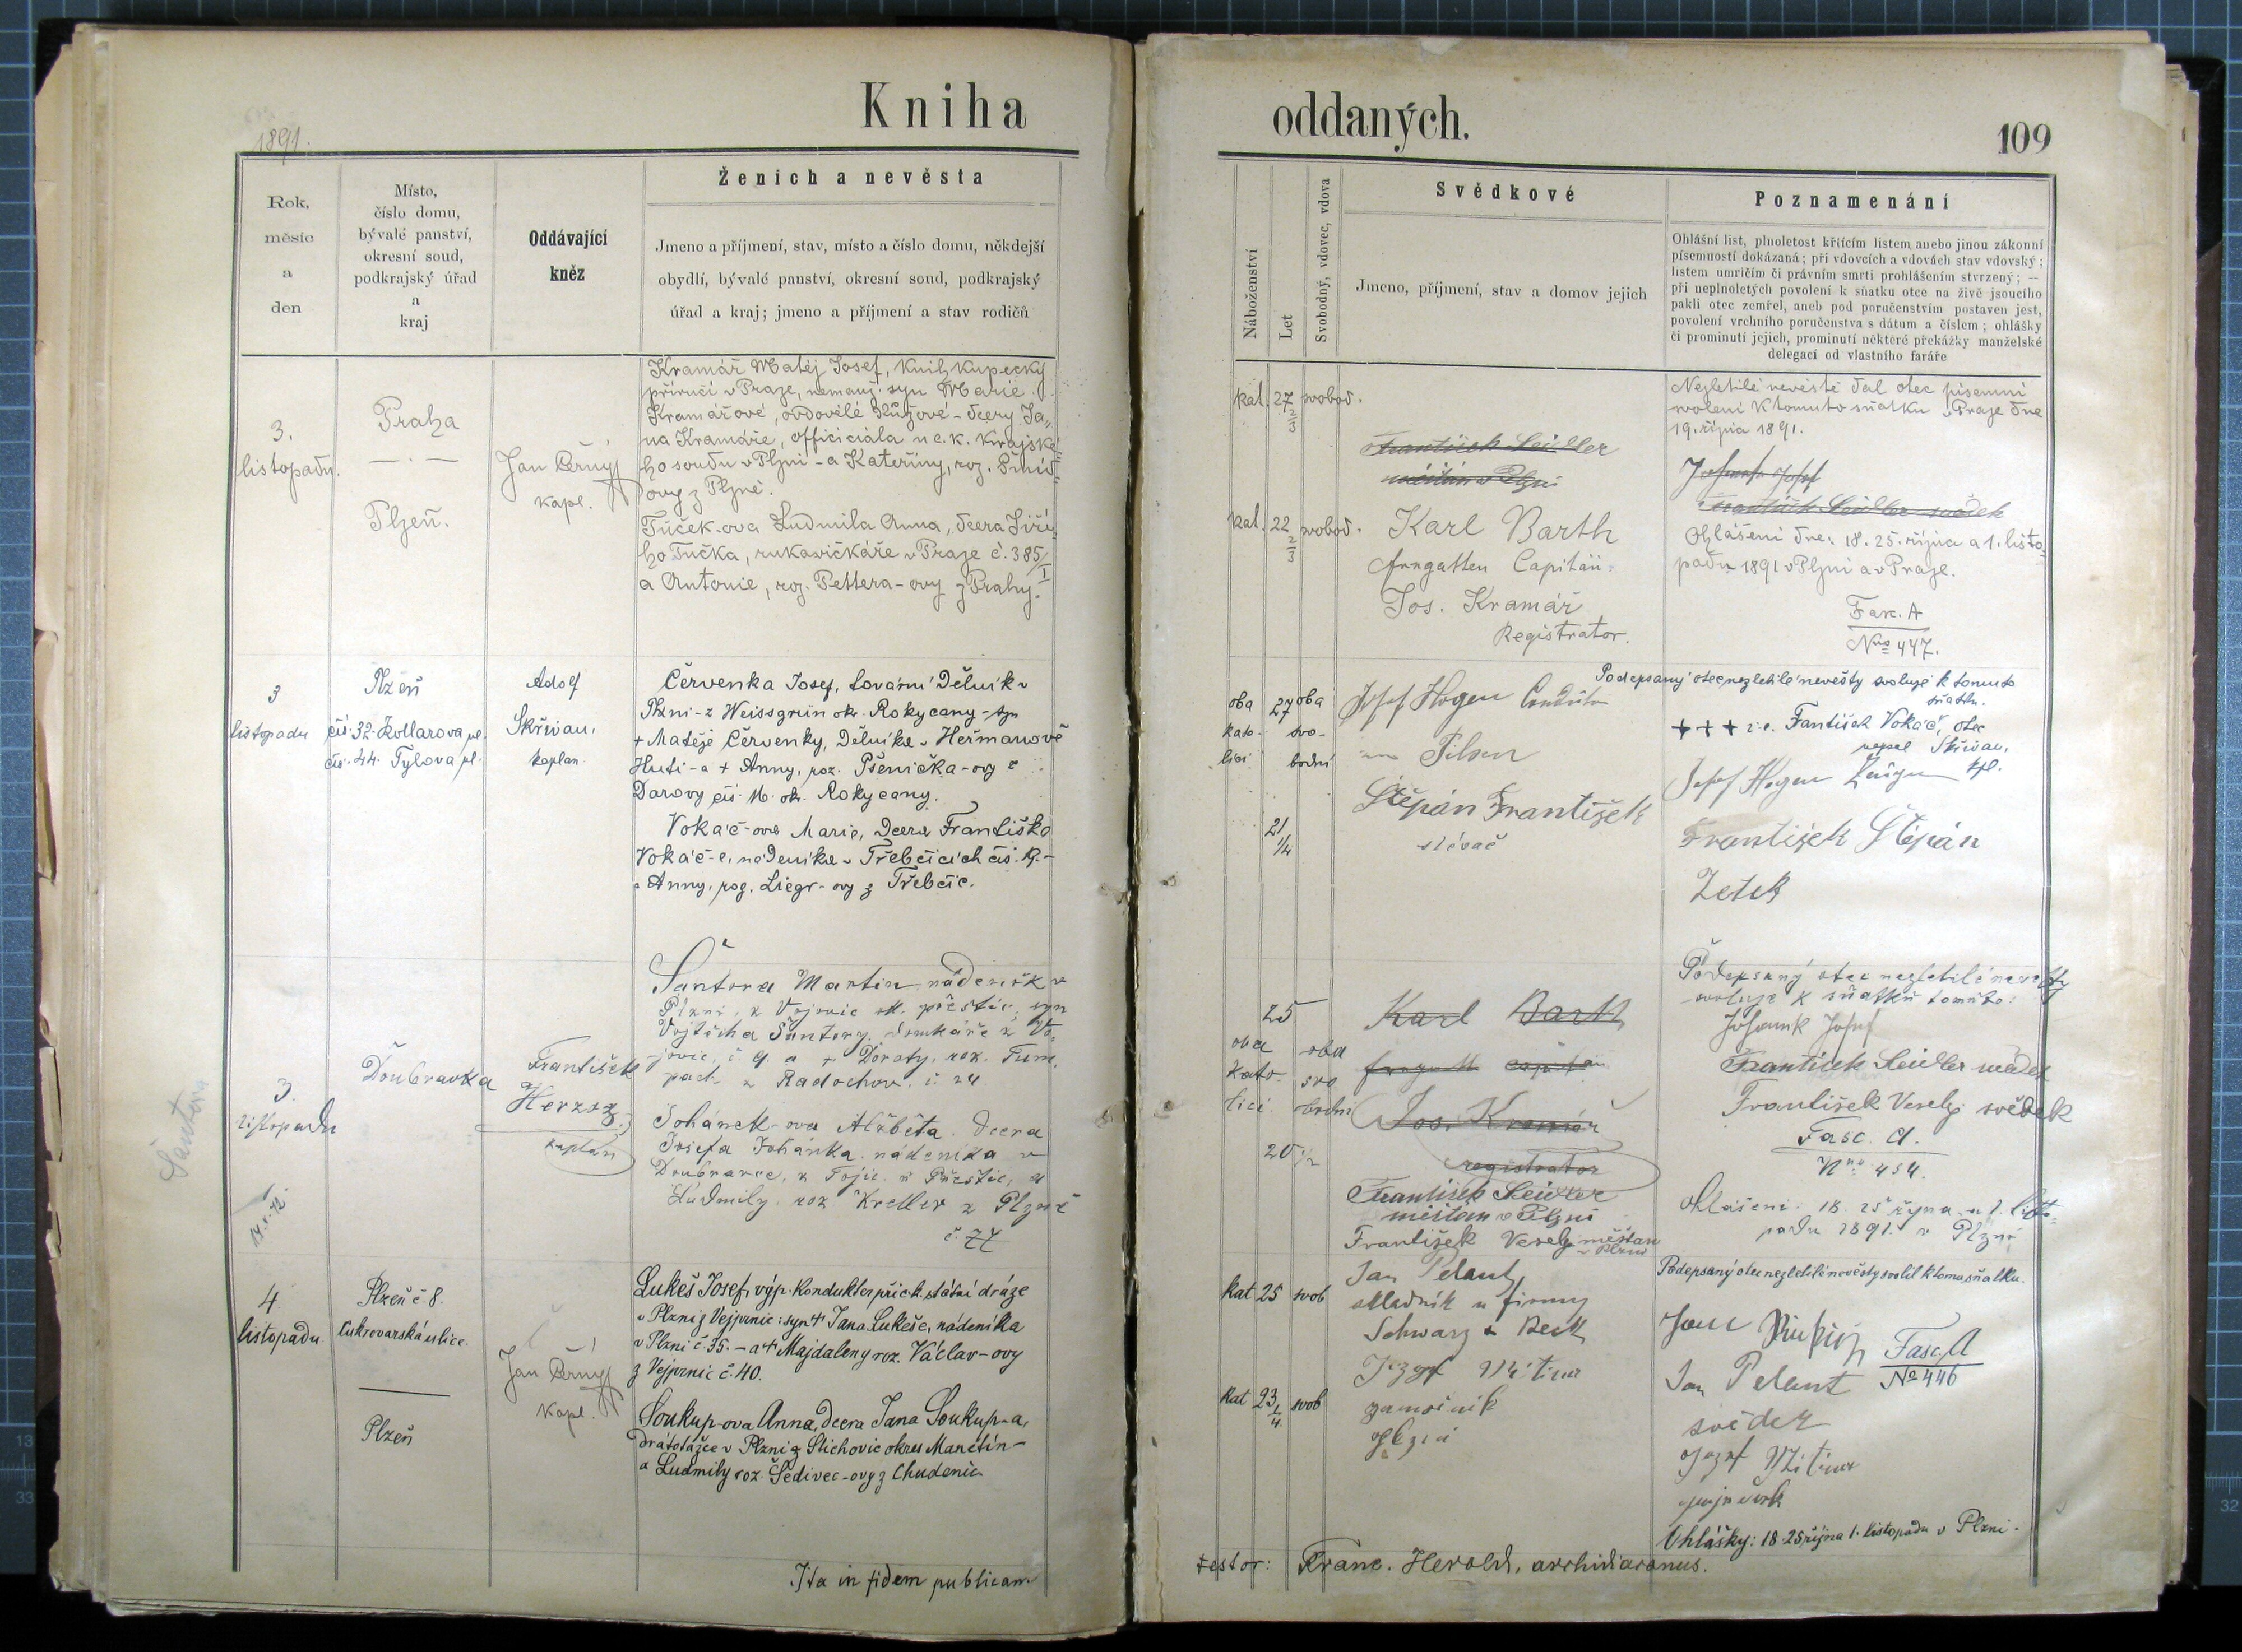 Kniha
1891.
Rok,
měsíc
a
den
Místo,
číslo domu,
bývalé panství,
okresní soud,
podkrajský úřad
a
kraj
Oddávající
kněz
Ženich a nevěsta
Jmeno a příjmení, stav, místo a číslo domu, někdejší
obydlí, bývalé panství, okresní soud, podkrajský
úřad a kraj; jmeno a příjmení a stav rodičů
3.
listopadu.
Praha
Plzeň.
Jan Černý
kapl.
Kramář Matěj Josef, knihkupecký
příručí v Praze, nemanž. syn Marie
Kramářové, ovdovělé Růžové - dcery Ja„
na Kramáře, officiciála u c. k. krajské„
ho soudu v Plzni - a Kateřiny, roz. Šmíd„
ovy z Plzně.
Tuček-ova Ludmila Anna, dcera Jiří„
ho Tučka, rukavičkáře v Praze č. 385/I
a Antonie, roz. Pettera-ovy z Prahy.
3
listopadu
Plzeň
čís. 32. Kollarova ul.
čís. 44. Tylova pl.
Adolf
Skřivan,
kaplan
Červenka Josef, tovární dělník v
Plzni - z Weissgrün okr. Rokycany - syn
+ Matěje Červenky, dělníka v Heřmanově
Huti - a + Anny, roz. Pšenička-ovy z
Darovy čís. 16. okr. Rokycany.
Vokáč-ova Marie, dcera Františka
Vokáč-e, nádeníka v Třebčicích čís. 19. -
a Anny, roz. Liegr-ovy z Třebčic.
Šantora
3.
listopadu
Doubravka
František
Herzog
kaplán
Šantora Martin, nádeník v
Plzni, z Vojovic ok. přeštic, syn
Vojtěcha Šantory, domkáře z Vo„
jovic, č. 9. a + Doroty, roz. Tum„
pach z Radochov, č. 24
Johánek-ova Alžběta. dcera
Josefa Johánka. nádeníka v
Doubravce, z Tojic. u Přeštic, a
Ludmily. roz Kreller z Plzně
č. 77
4
listopadu
Plzeň č. 8.
Cukrovarská ulice.
Plzeň
Jan Černý
kapl.
Lukeš Josef, výp. kondukter při c. k. státní dráze
v Plzni z Vejprnic: syn + Jana Lukeše, nádeníka
v Plzni č. 35. - a + Majdaleny roz. Václav-ovy
z Vejprnic č. 40.
Soukup-ova Anna, dcera Jana Soukup-a,
drátotažce v Plzni z Stichovic okres Manětín -
a Ludmily roz. Šedivec-ovy z Chudenic
Ita in fidem publicam
oddaných.
109
Náboženství
Let
Svobodný, vdovec, vdova
Svědkové
Jmeno, příjmení, stav a domov jejich
Poznamenání
Ohlášní list, plnoletost křticím listem anebo jinou zákonní
písemností dokázaná; při vdovcích a vdovách stav vdovský;
listem umrlčím či právním smrti prohlášením stvrzený; —
při neplnoletých povolení k sňatku otce na živě jsoucího
pakli otec zemřel, aneb pod poručenstvím postaven jest,
povolení vrchního poručenstva s dátum a číslem; ohlášky
či prominutí jejich, prominutí některé překážky manželské
delegací od vlastního faráře
kat. 27 2/3 svobod.
František Seidler
měšťan v Plzni
kat. 22 2/3 svobod.
Karl Barth
Fregatten Capitän
Jos. Kramář
Registrator.
Nezletilé nevěstě dal otec písemní
svolení k tomuto sňatku v Praze dne
19. října 1891.
František Seidler svědek
Ohlášení dne: 18. 25. října a 1. listo„
padu 1891 v Plzni a v Praze.
Fasc. A
Nro 447.
oba 27 oba
kato- svo-
líci bodní
21 1/4
Josef Hogen
Pilsen
Štěpán František
slévač
Podepsaný otec nezletilé nevěsty svoluje k tomuto
sňatku.
+++ z. o. František Vokáč, otec
napsal Skřivan,
kpl.
Josef Hogen
František Štěpán
25
oba oba
kato- svo
líci bodní
20 1/2
Karl Barth
Jos. Kramář
registrator
František Seidler
měšťan v Plzni
František Veselý měšťan
v Plzni
Podepsaný otec nezletilé nevěsty
svoluje k sňatku tomuto:
Johanek Josef
František Seidler svědek
František Veselý svědek
Fasc. A.
Nro 454.
Ohlášení. 18. 25 října a 1. listo„
padu 1891. v Plzni
kat 25 svob
Jan Pelant,
skladník u firmy
Schwarz & Beck
kat 23 1/4. svob
zámečník
Podepsaný otec nezletilé nevěsty svolil k tomu sňatku.
Fasc. A
No 446
Jan Pelant
svědek
Ohlášky: 18. 25 října 1. listopadu v Plzni.
testor: Franc. Herold, archidiaconus.